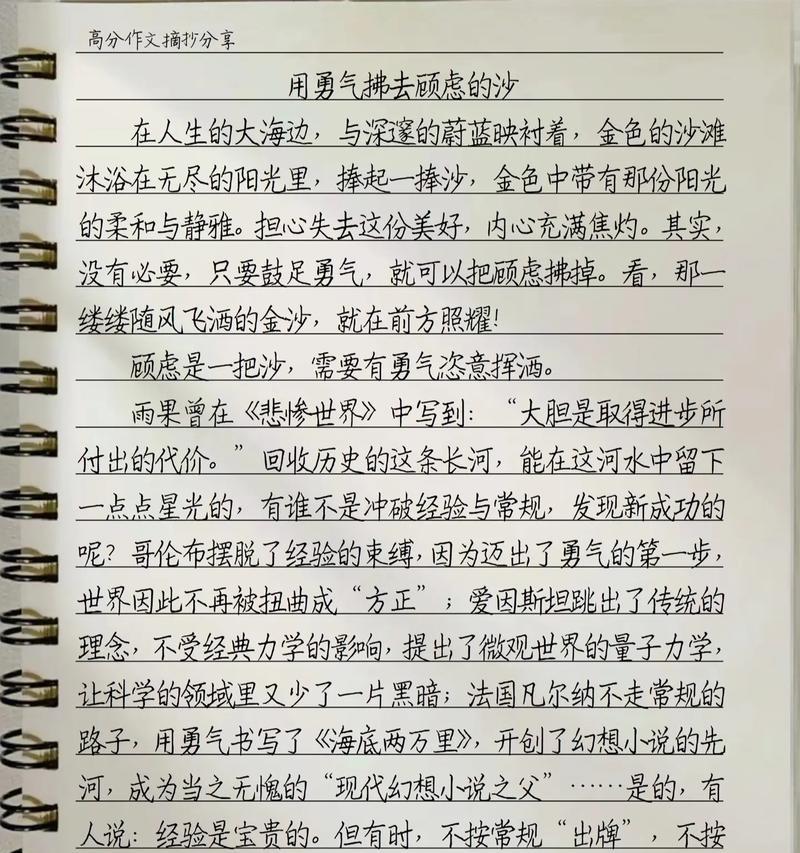 高分作文摘抄分享
用勇气拂去顾虑的沙
在人生的大海边，与深邃的蔚蓝映衬着，金色的沙滩
沐浴在无尽的阳光里，捧起一捧沙，金色中带有那份阳光
的柔和与静雅。担心失去这份美好，内心充满焦灼。其实，
没有必要，只要鼓足勇气，就可以把顾虑拂掉。看，那一
缕缕随风飞洒的金沙，就在前方照耀！
顾虑是一把沙，需要有勇气恣意挥洒。
雨果曾在《悲惨世界》中写到：“大胆是取得进步所
付出的代价。”回收历史的这条长河，能在这河水中留下
一点点星光的，有谁不是冲破经验与常规，发现新成功的
呢？哥伦布摆脱了经验的束缚，因为迈出了勇气的第一步，
世界因此不再被扭曲成“方正”；爱因斯坦跳出了传统的
理念，不受经典力学的影响，提出了微观世界的量子力学，
让科学的领域里又少了一片黑暗；法国凡尔纳不走常规的
路子，用勇气书写了《海底两万里》，开创了幻想小说的先
河，成为当之无愧的“现代幻想小说之父”……是的，有
人说：经验是宝贵的。但有时，不按常规“出牌”，不按